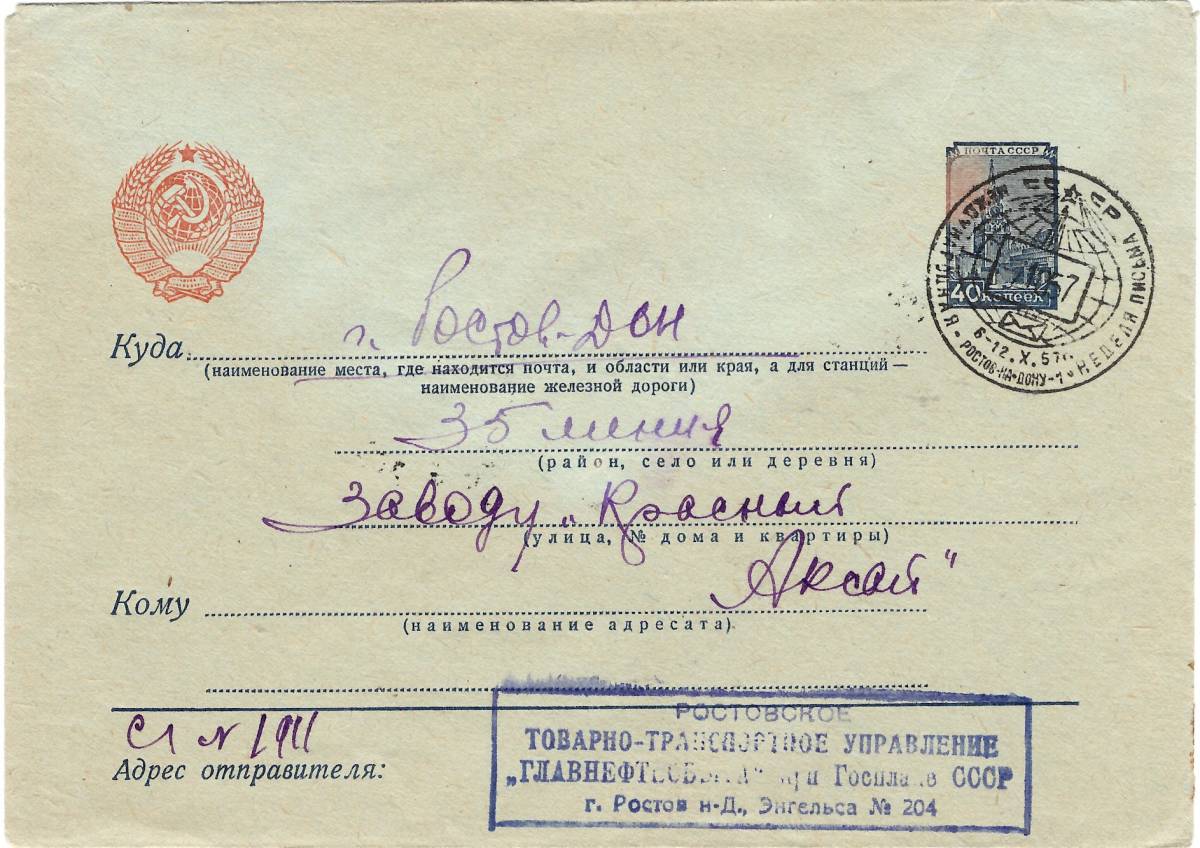 ПОЧТА СССР
40 копеек
6-12.X.57
РОСТОВ-НА-ДОНУ-1
НЕДЕЛЯ ПИСЬМА
г. Ростов-Дон
Куда
(наименование места, где находится почта, и области или края, а для станций —
наименование железной дороги)
35 линия
(район, село или деревня)
Заводу „Красный
(улица, № дома и квартиры)
Аксай"
Кому
(наименование адресата)
РОСТОВСКОЕ
ТОВАРНО-ТРАНСПОРТНОЕ УПРАВЛЕНИЕ
„ГЛАВНЕФТЕСБЫТА" при Госплане СССР
г. Ростов н-Д., Энгельса № 204
Адрес отправителя: